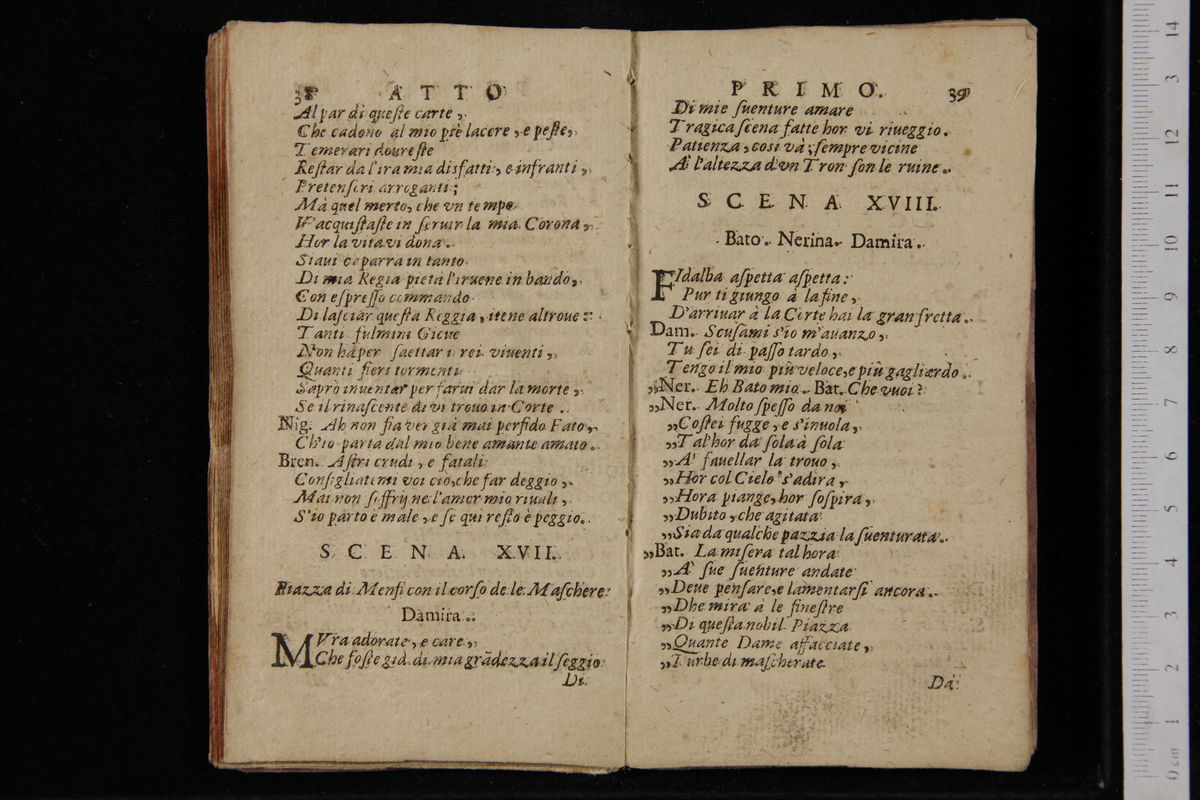 38 ATTO
Al par di queſte carte,
Che cadono al mio piè lacere, e peſte,
Temerari doureſte
Reſtar da l'ira mia disfatti, e infranti,
Pretenſori arroganti;
Mà quel merto, che vn tempo
V'acquiſtaſte in ſeruir la mia Corona,
Hor la vita vi dona.
Siaui caparra in tanto
Di mia Regia pietà l'iruene in bando,
Con eſpreſſo commando
Di laſciar queſta Reggia, itene altroue:
Tanti fulmini Gioue
Non hà per ſaettar i rei viuenti,
Quanti fieri tormenti
Sapro inuentar per farui dar la morte,
Se il rinaſcente dì vi troua in Corte.
Nig. Ah non fia ver già mai perfido Fato,
Ch'io parta dal mio bene amante amato.
Bren. Aſtri crudi, e fatali
Conſigliatemi voi ciò, che far deggio,
Mai non ſoffrij ne l'amor mio riuali,
S'io parto è male, e ſe qui reſto è peggio.
SCENA XVII.
Piazza di Menfi con il corſo de le Maſchere
Damira.
MVra adorate, e care,
Che foſte già di mia grãdezza il ſeggio
Di
PRIMO. 39
Di mie ſuenture amare
Tragica ſcena fatte hor vi riueggio.
Patienza, così và; ſempre vicine
A' l'altezza d'vn Tron ſon le ruine.
SCENA XVIII.
Bato. Nerina. Damira.
FIdalba aſpetta aſpetta:
Pur ti giungo à la fine,
D'arriuar à la Corte hai la gran fretta.
Dam. Scuſami s'io m'auanzo,
Tu ſei di paſſo tardo,
Tengo il mio più veloce, e più gagliardo.
„Ner. Eh Bato mio. Bat. Che vuoi?
„Ner. Molto ſpeſſo da noi
„Coſtei fugge, e s'inuola,
„Tal'hor da ſola à ſola
„A' fauellar la trouo,
„Hor col Cielo s'adira,
„Hora piange, hor ſoſpira,
„Dubito, che agitata
„Sia da qualche pazzia la ſuenturata.
„Bat. La miſera tal hora
„A' ſue ſuenture andate
„Deue penſare, e lamentarſi ancora.
„Dhe mira à le fineſtre
„Di queſta nobil Piazza
„Quante Dame affacciate,
„Turbe di maſcherate
Da